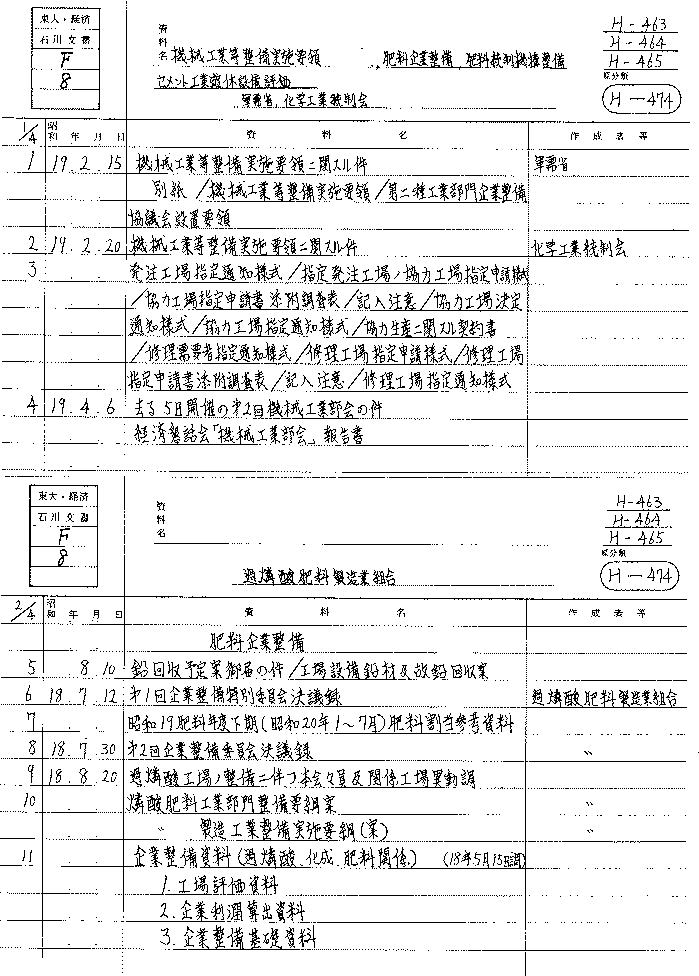 東大・経済
石川文書
F
8
資料名 機械工業等整備実施要領 , 肥料企業整備, 肥料統制機構整備
セメント工業整休設備評価
軍需省, 化学工業統制会
H-463
H-464
H-465
原分類
H-474
1/4 昭和 年 月 日 資料名 作成者等
1 19. 2. 15 機械工業等整備実施要領ニ関スル件 軍需省
別紙/機械工業等整備実施要領/第二種工業部門企業整備
協議会設置要領
2 19. 2. 20 機械工業等整備実施要領ニ関スル件 化学工業統制会
3 発注工場指定通知様式/指定発注工場ノ協力工場指定申請様式
/協力工場指定申請書添附調査表/記入注意/協力工場決定
通知様式/協力工場指定通知様式/協力生産ニ関スル契約書
/修理需要者指定通知様式/修理工場指定申請様式/修理工場
指定申請書添附調査表/記入注意/修理工場指定通知様式
4 19. 4. 6 去る5日開催の第2回機械工業部会の件
経済懇話会「機械工業部会」報告書
東大・経済
石川文書
F
8
資料名
過燐酸肥料製造業組合
H-463
H-464
H-465
原分類
H-474
2/4 昭和 年 月 日 資料名 作成者等
肥料企業整備
5 8. 10 鉛回収予定案御届の件/工場設備鉛材及故鉛回収案
6 18. 7. 12 第1回企業整備特別委員会決議録 過燐酸肥料製造業組合
7 昭和19肥料年度下期(昭和20年1~7月)肥料割当参考資料
8 18. 7. 30 第2回企業整備委員会決議録 〃
9 18. 8. 20 過燐酸工場ノ整備ニ伴フ本会々員及関係工場異動調
10 燐酸肥料工業部門整備要綱案 〃
〃 製造工業整備実施要綱(案) 〃
11 企業整備資料(過燐酸、化成、肥料関係) (18年5月13日調)
1. 工場評価資料
2. 企業利潤算出資料
3. 企業整備基礎資料